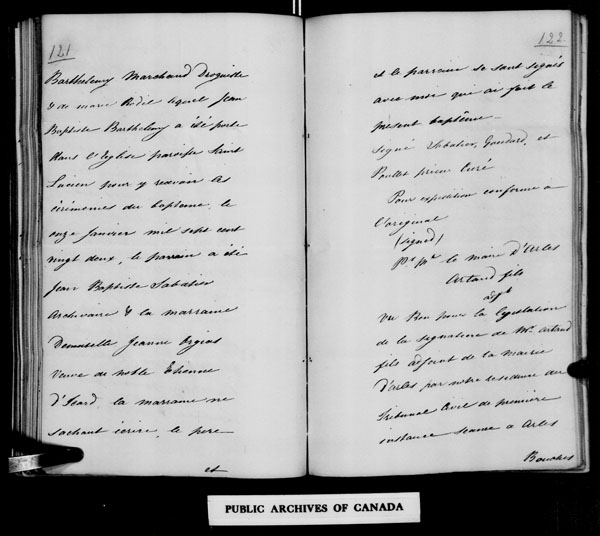 121
Barthelemy Marchand Droguiste
& de marie Rudil lequel Jean
Baptiste Barthelemy a été porté
dans l'Eglise paroisse Saint
Lucien pour y recevoir les
cérémonies du bapteme, le
onze Janvier mil sept cent
vingt deux, le parrain a été
Jean Baptiste Sabatier
Archivaire & la marraine
Demoiselle Jeanne
Veuve de noble Etienne
d'Icard la marraine ne
sachant écrire, le pere
et
122
et le parrain se sont signés
avec moi qui ai fait le
present baptême
signé Sabatier, Goudard, et
Poullet prieur Curé
Pour expédition conforme a
l'original
(signed)
Pr le maire d'Arles
Artaud fils
adjt
Vu Bon pour la legislation
de la signature de Mr Artaud
fils adjoint de la mairie
d'Arles par notre residence du
Tribunal Civil de première
instance seante a Arles
Bouches
PUBLIC ARCHIVES OF CANADA